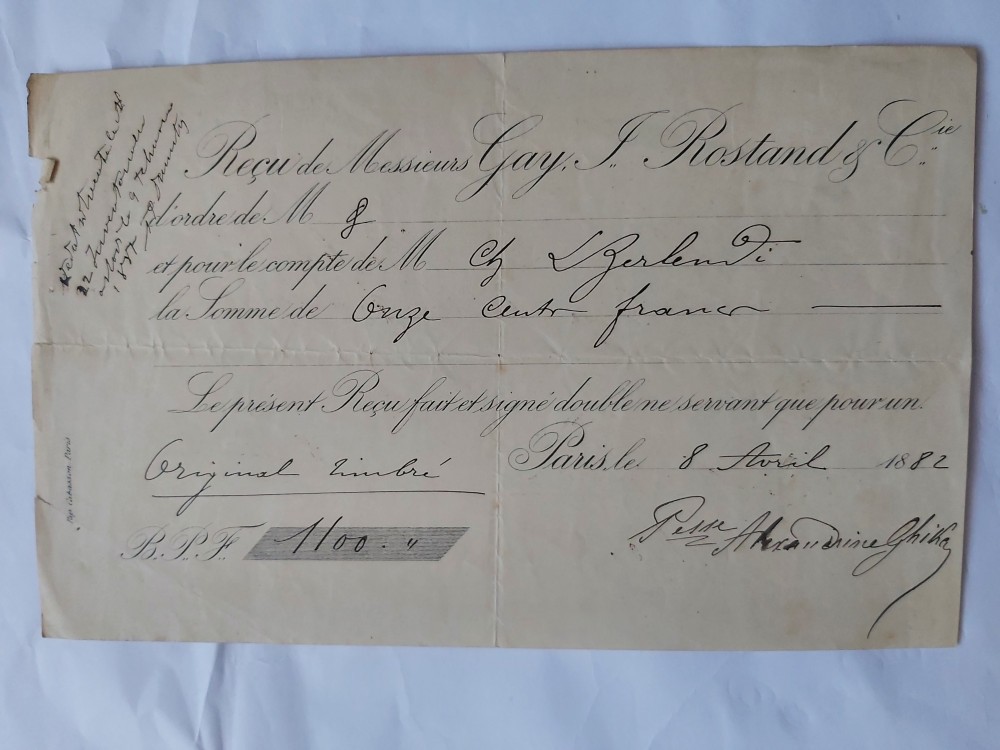 Reçu de Messieurs Gay, J. Rostand & C.ie
d'ordre de M
et pour le compte de M Ch
la Somme de Onze cents francs
Le présent Reçu fait et signé double ne servant que pour un.
Original timbré
Paris, le 8 Avril 1882
B.P.F. 1100. "
Pesse Alexandrine Ghika
22
le 9
1897
Paris